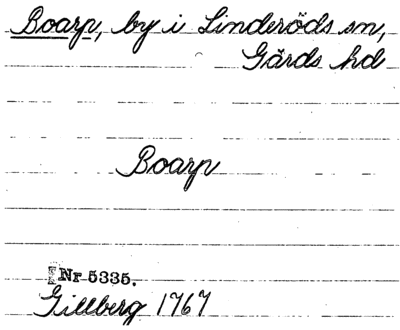 Boarp, by i Linderöds sn,
Gärds hd
Boarp
Nr 5335.
Gillberg 1767